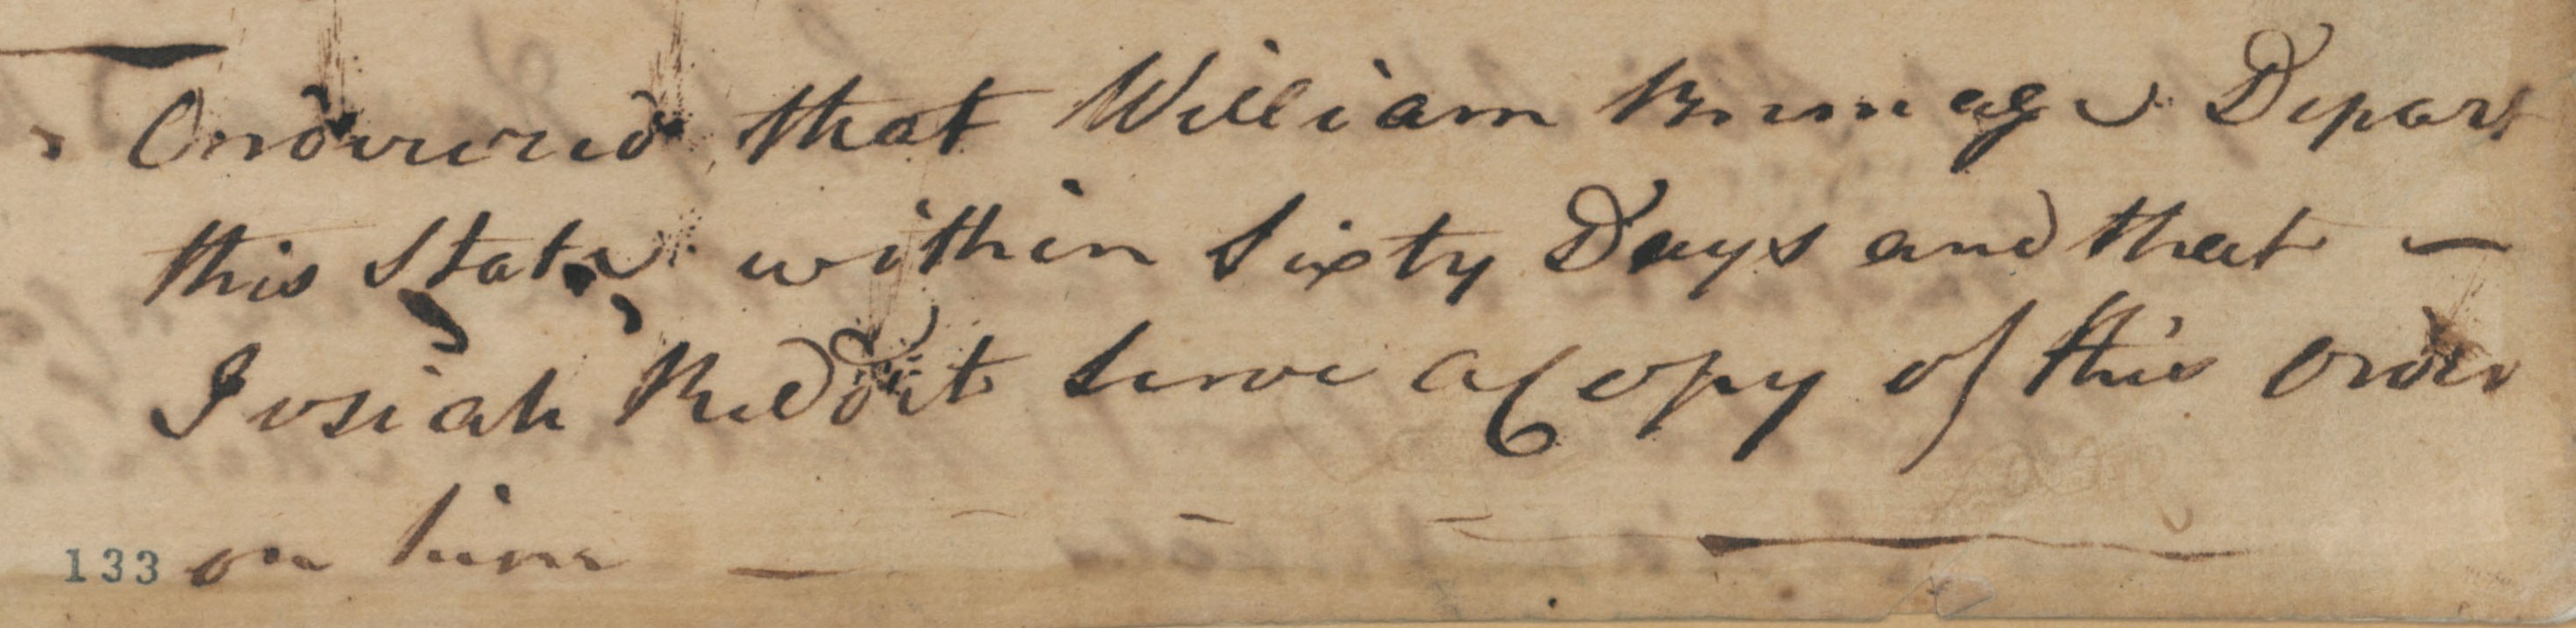 Ordered that William Brumage Depart
this State within Sixty Days and that —
Josiah Reddit Serve a Copy of this order
133 on him —